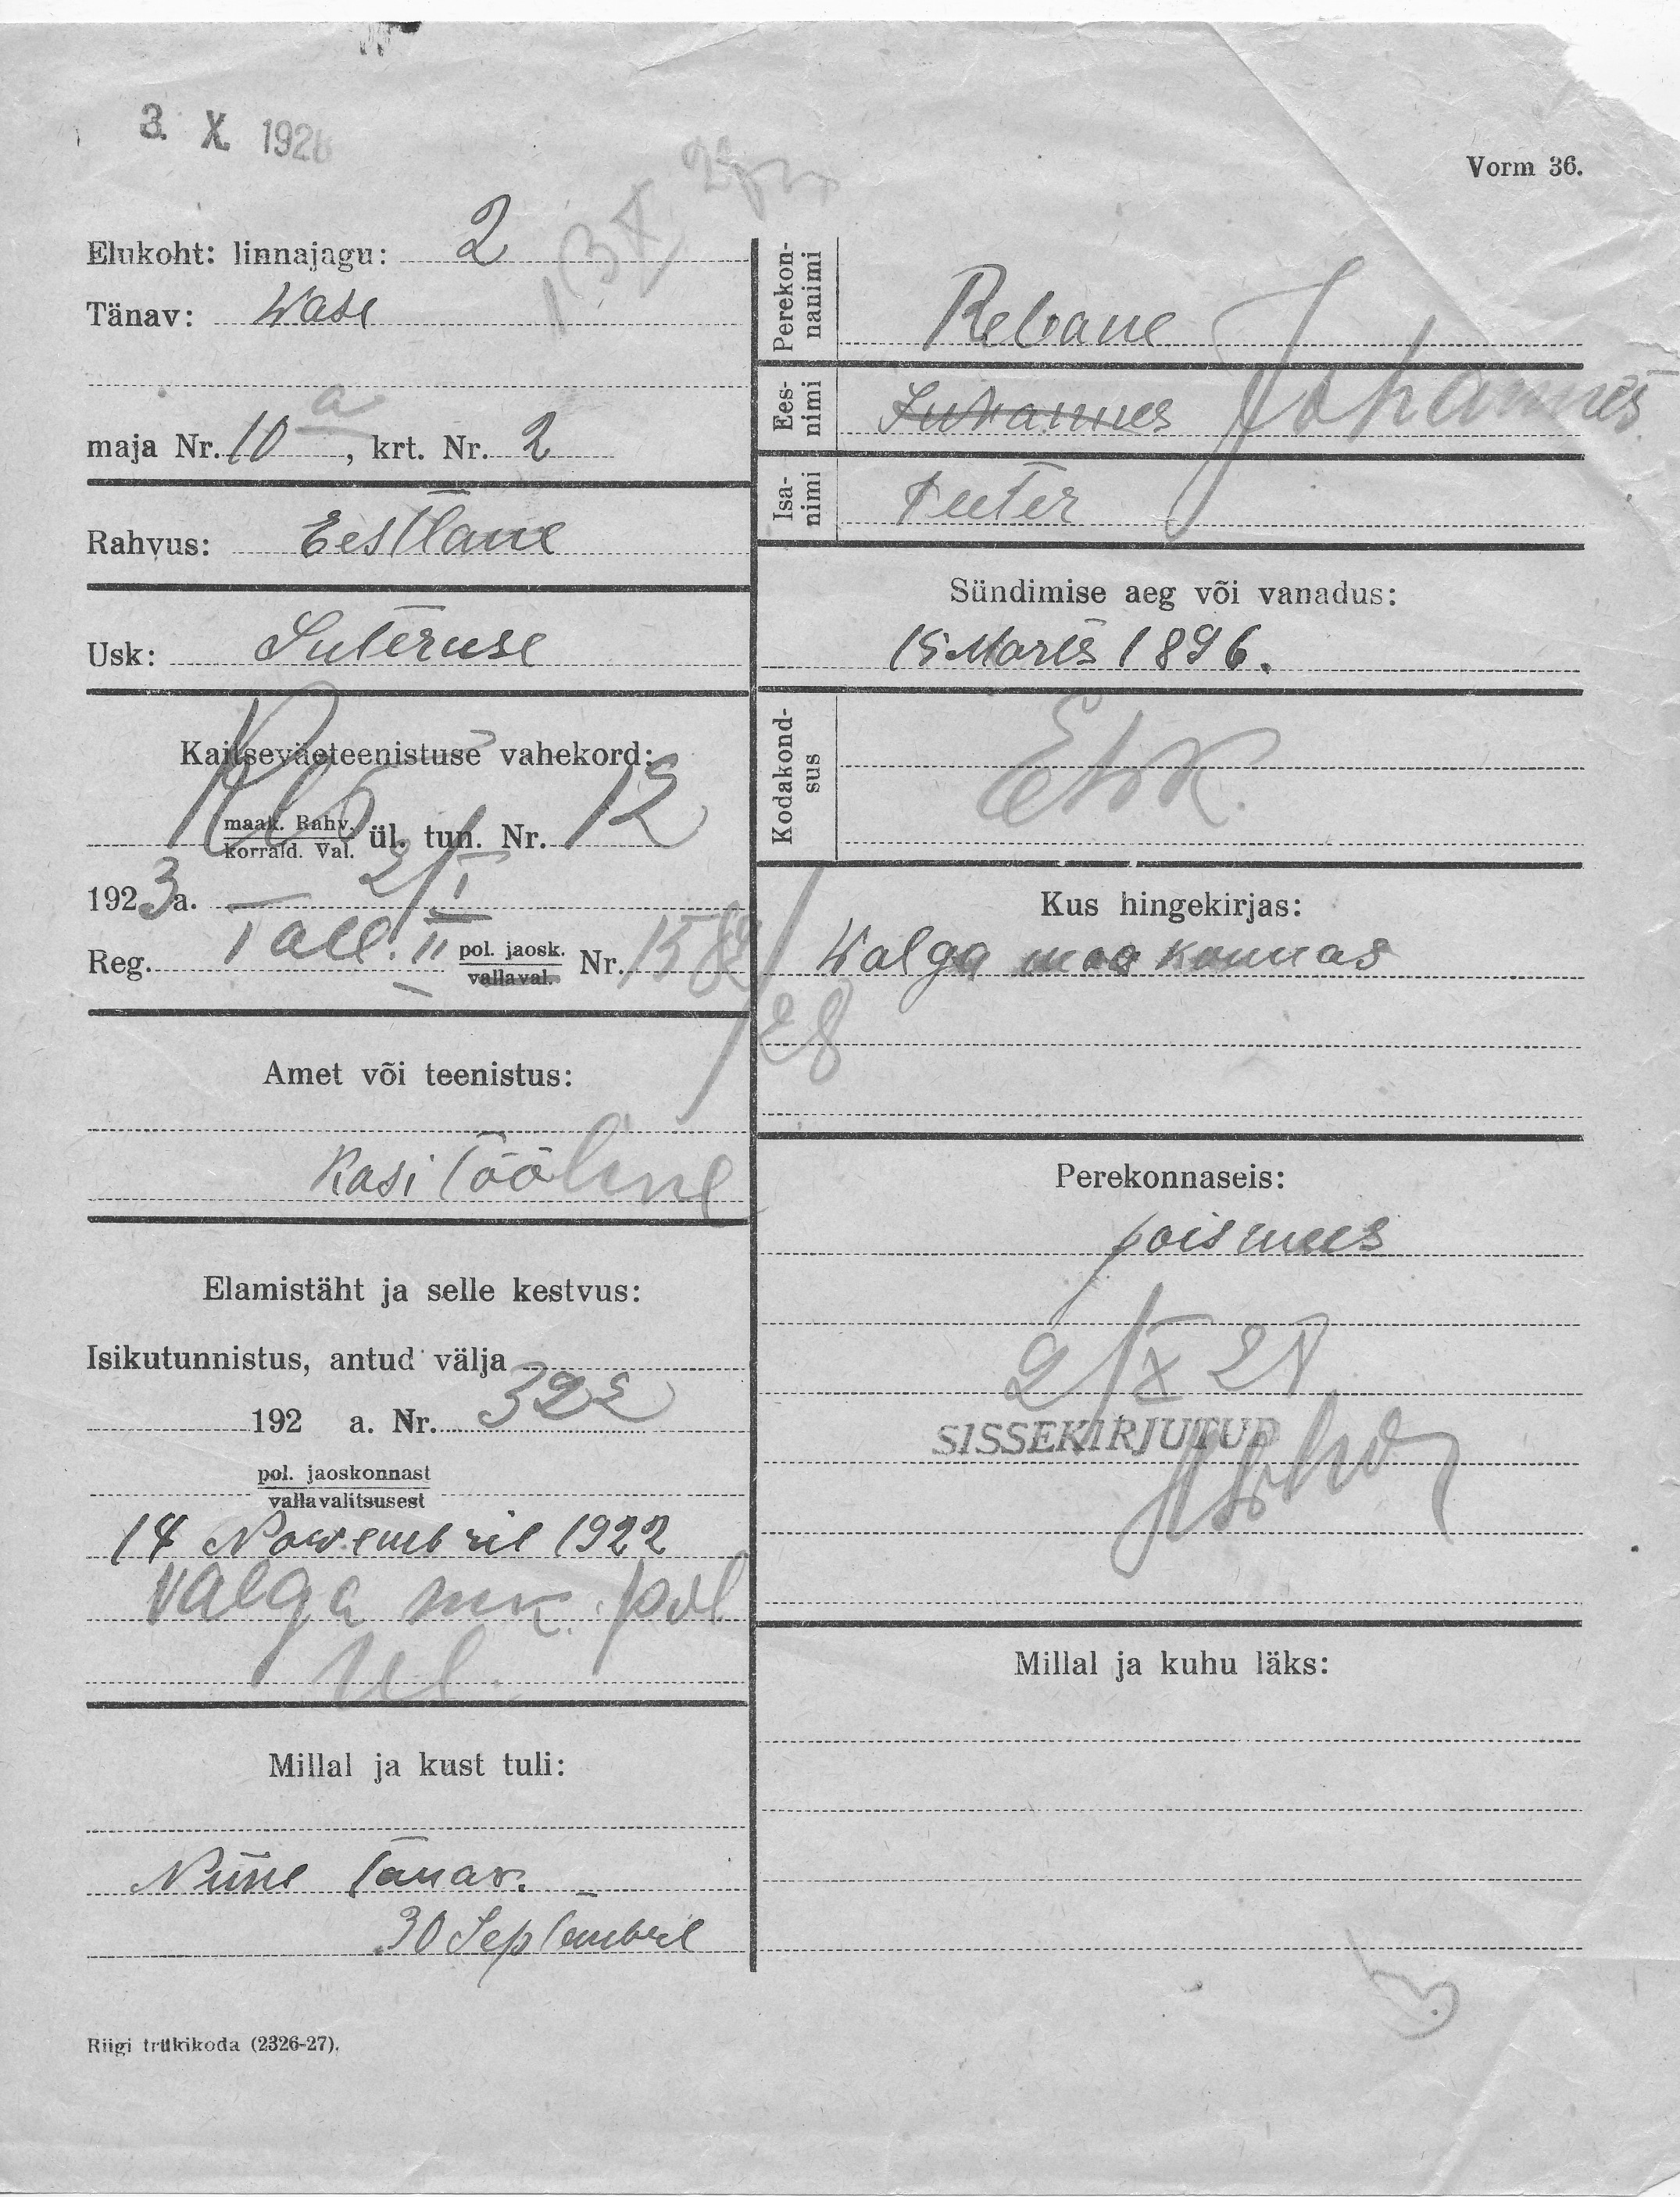 3. X. 1928
Vorm 36.
Elukoht: linnajagu: 2
Tänav: Wase
maja Nr. 10 a, krt. Nr. 2
Rahvus: Eestlane
Usk: Luteruse
Kaitseväeteenistuse vahekord:
maak. Rahv.
korrald. Val. ül. tun. Nr. 12
1923 a. 2/I
Reg. Tall. II pol. jaosk. Nr. 
vallaval.
/28
Amet või teenistus:
Kasitööline
Elamistäht ja selle kestvus:
Isikutunnistus, antud välja
192 a. Nr. 322
pol. jaoskonnast
vallavalitsusest
14 Nowembril 1922
Valga mk. pol
Ül.
Millal ja kust tuli:
Niine tänav.
30 Septembril
Riigi trükikoda (2326-27).
Perekonnanimi
Rebane
Eesnimi
Juhannes Johannes
Isanimi
Peeter
Sündimise aeg või vanadus:
15 Marts 1896.
Kodakondsus
Kus hingekirjas:
Walga maakonnas
Perekonnaseis:
poismees
2/X 28
SISSEKIRJUTUD
Millal ja kuhu läks: